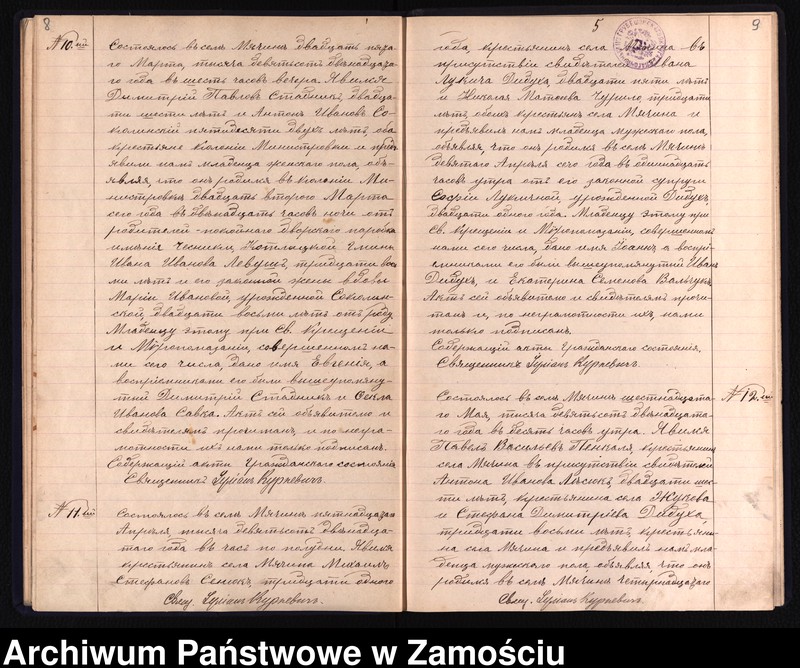 8
№ 10.ий
Состоялось въ селѣ Мячинѣ двадцать пята-
го Марта, тысяча девятьсотъ двѣнадцата-
го года въ шесть часовъ вечера. Явился
Димитрій Павловъ Стадникъ, двадца-
ти шести лѣтъ и Антонъ Ивановъ Со-
колинскій пятидесяти двухъ лѣтъ, оба
крестьяне колоніи Министровки и предъ-
явили намъ младенца женскаго пола, объ-
являя, что онъ родился въ колоніи Ми-
нистровка двадцать втораго Марта
сего года въ двѣнадцать часовъ ночи отъ
родителей покойнаго дворскаго паробка
имѣнія Чесники, Котлицкой гмины
Ивана Иванова Левуш, тридцати вось-
ми лѣтъ и его законной жены вдовы
Маріи Ивановой, урожденной Соколин-
ской, двадцати восьми лѣтъ отъ роду.
Младенцу этому при Св. Крещеніи
и Мѵропомазаніи, совершенномъ на-
ми сего числа, дано имя Евгенія, а
воспріемниками его были вышеупомяну-
тый Димитрій Стадникъ и Текла
Иванова Савка. Актъ сей объявителю и
свидѣтелямъ прочитанъ и по негра-
мотности ихъ нами только подписанъ.
Содержащій акты Гражданскаго состоянія
Священникъ Іуліанъ Куркевичъ.
№ 11.ий
Состоялось въ селѣ Мячинѣ пятнадцатаго
Апрѣля, тысяча девятьсотъ двѣнадца-
таго года въ часъ по полудни. Явился
крестьянинъ села Мячина Михаилъ
Стефановъ Сенюкъ, тридцати одного
Свящ. Іуліанъ Куркевичъ.
5
9
года, крестьянинъ села въ
присутствіи свидѣтелей Ивана
Лукича Дидуха двадцати пяти лѣтъ
и Николая Матвѣева Чурило, тридцати
лѣтъ, обоихъ крестьянъ села Мячина и
предъявилъ намъ младенца мужскаго пола,
объявляя, что онъ родился въ селѣ Мячинѣ
девятаго Апрѣля сего года въ одиннадцать
часовъ утра отъ его законной супруги
Софіи Лукичной, урожденной Дидухъ,
двадцати одного года. Младенцу этому при
Св. Крещеніи и Мѵропомазаніи, совершенномъ
нами сего числа, дано имя Іоаннъ, а воспрі-
емниками его были вышеупомянутый Иванъ
Дидухъ, и Екатерина Семенова Вальчукъ.
Актъ сей объявителю и свидѣтелямъ прочи-
танъ и, по неграмотности ихъ, нами
только подписанъ.
Содержащій акты Гражданскаго состоянія.
Священникъ Іуліанъ Куркевичъ.
№ 12.ий
Состоялось въ селѣ Мячинѣ шестнадцата-
го Мая, тысяча девятьсотъ двѣнадцата-
го года въ десять часовъ утра. Явился
Павелъ Васильевъ Пенкаля, крестьянинъ
села Мячина въ присутствіи свидѣтелей
Антона Иванова двадцати шес-
ти лѣтъ, крестьянина села Жукова
и Стефана Димитріева Дидуха,
тридцати восьми лѣтъ, крестьяни-
на села Мячина и предъявилъ намъ мла-
денца мужскаго пола, объявляя, что онъ
родился въ селѣ Мячинѣ четырнадцатаго
Свящ. Іуліанъ Куркевичъ.
Archiwum Państwowe w Zamościu